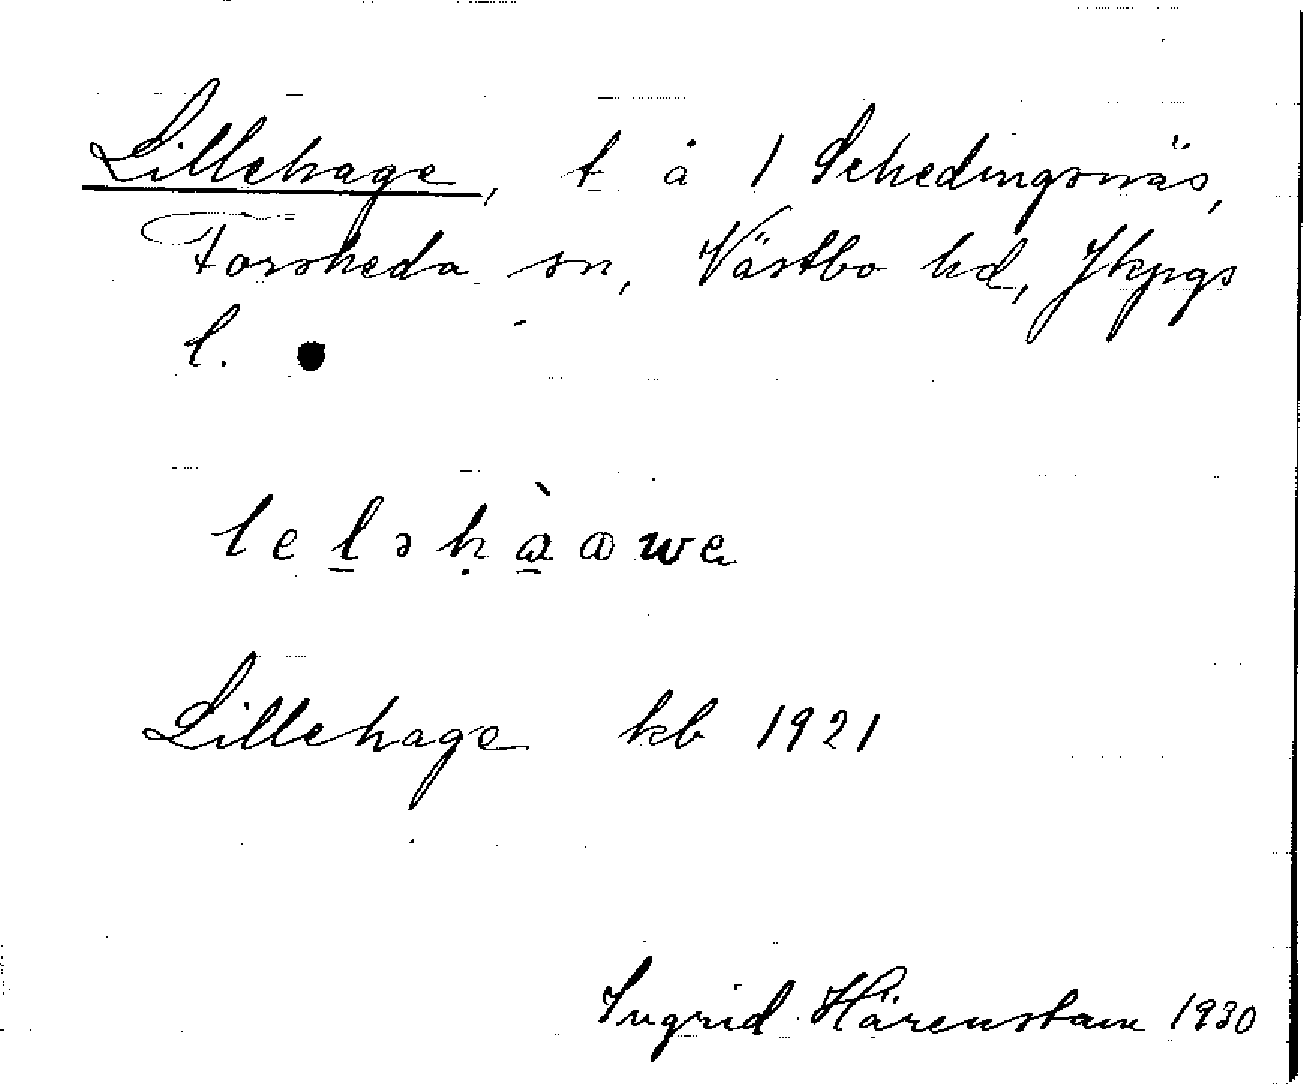 Lillehage, t å 1 Schedingsnäs,
Forsheda sn, Västbo hd, Jkpgs
l.
lelǝhàawa
Lillehage kb 1921
Ingrid Härenstam 1930